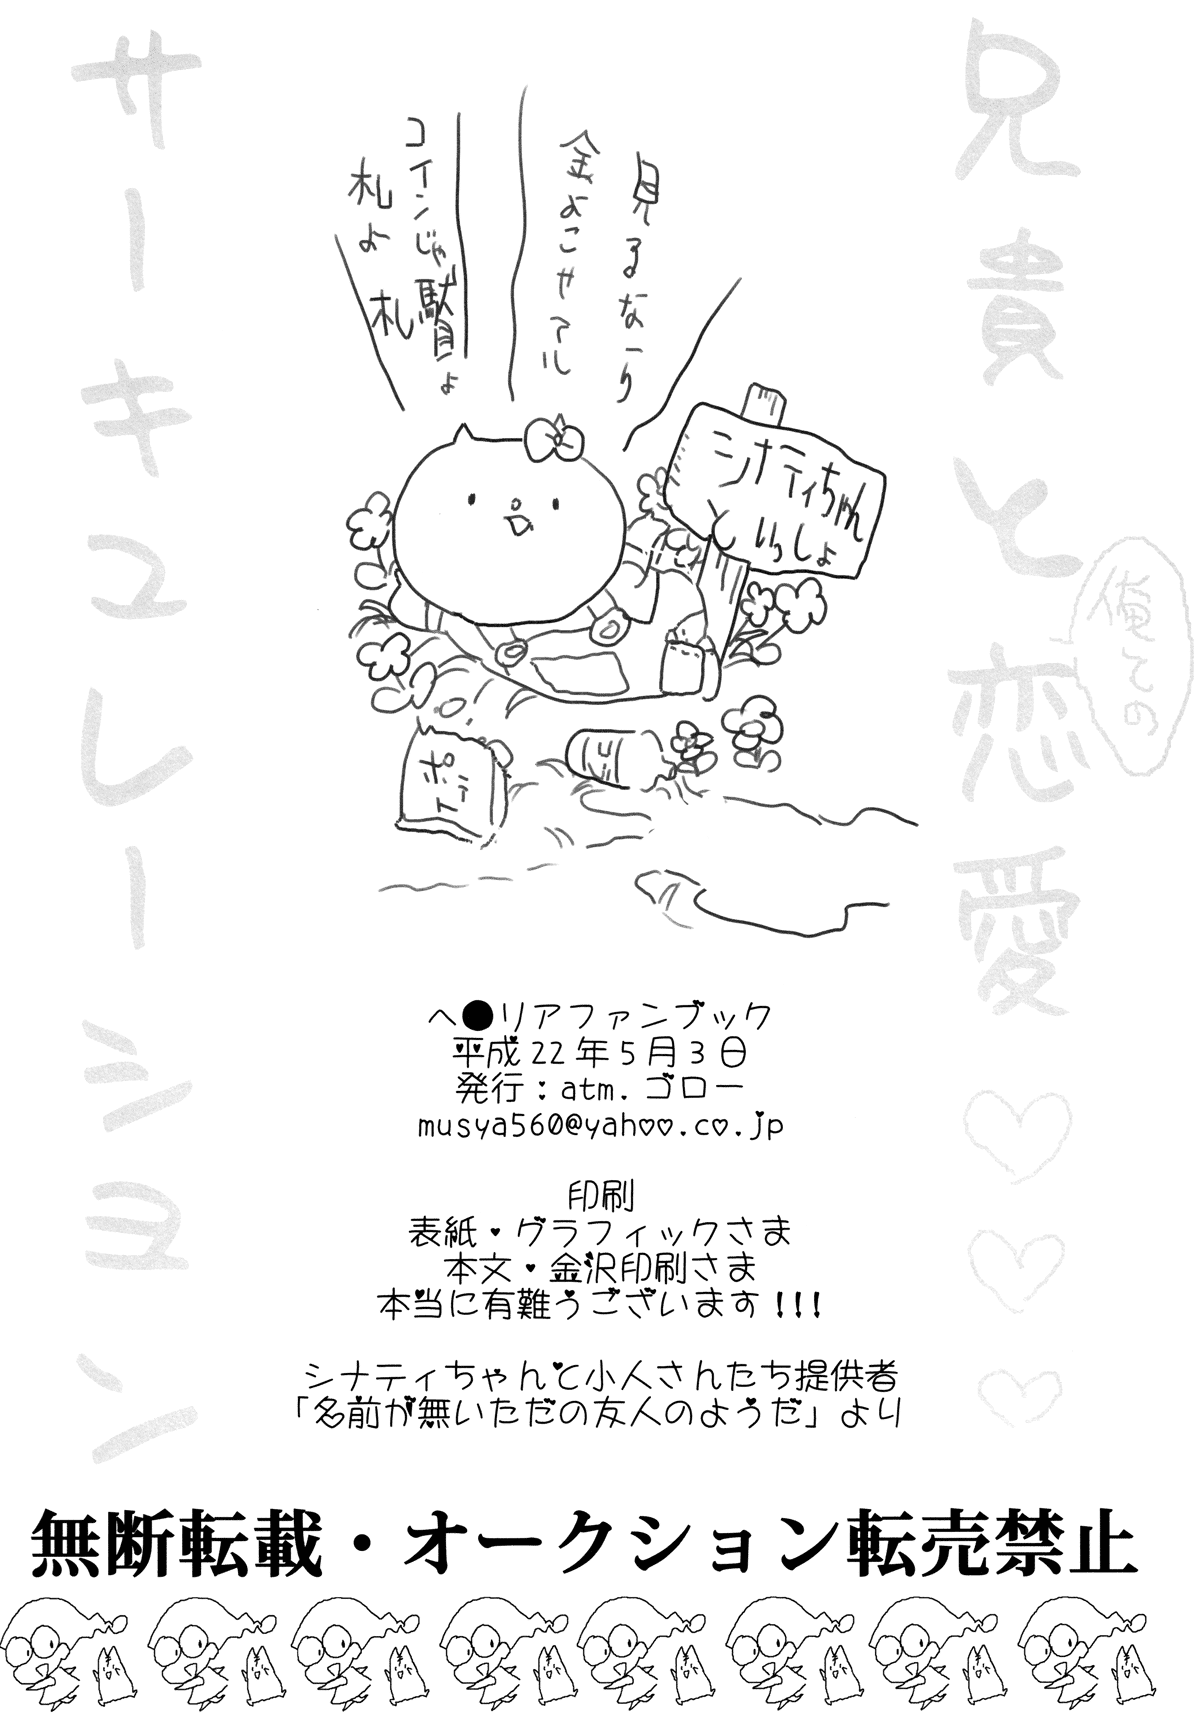 兄貴と恋愛♡♡♡
俺ての
サーキュレーション
見るなーり
金よこせアル
コインじゃ駄目よ
札よ札
シナティちゃん
といっしょ
ポテ
ヘ●リアファンブック
平成22年5月3日
発行：atm.ゴロー
musya560@yahoo.co.jp
印刷
表紙・グラフィックさま
本文・金沢印刷さま
本当に有難うございます!!!
シナティちゃんと小人さんたち提供者
「名前が無いただの友人のようだ」より
無断転載・オークション転売禁止